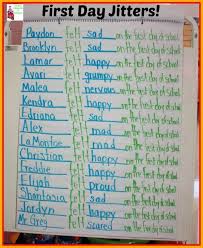 First Day Jitters!
Paydon felt sad on the first day of school
Brooklyn felt sad on the first day of school.
Lamar felt happy on the first day of school.
Avari felt grumpy on the first day of school.
Malea felt nervous on the first day of school.
Kendra felt happy on the first day of school.
Edriana felt sad on the first day of school.
Alex felt mad on the first day of school.
LaMontae felt mad on the first day of school.
Christian felt happy on the first day of school.
Freddie felt happy on the first day of school.
Elijah felt proud on the first day of school.
Shantasia felt sad on the first day of school.
Jordyn felt happy on the first day of school.
Mr. Greg felt scared on the first day of school.